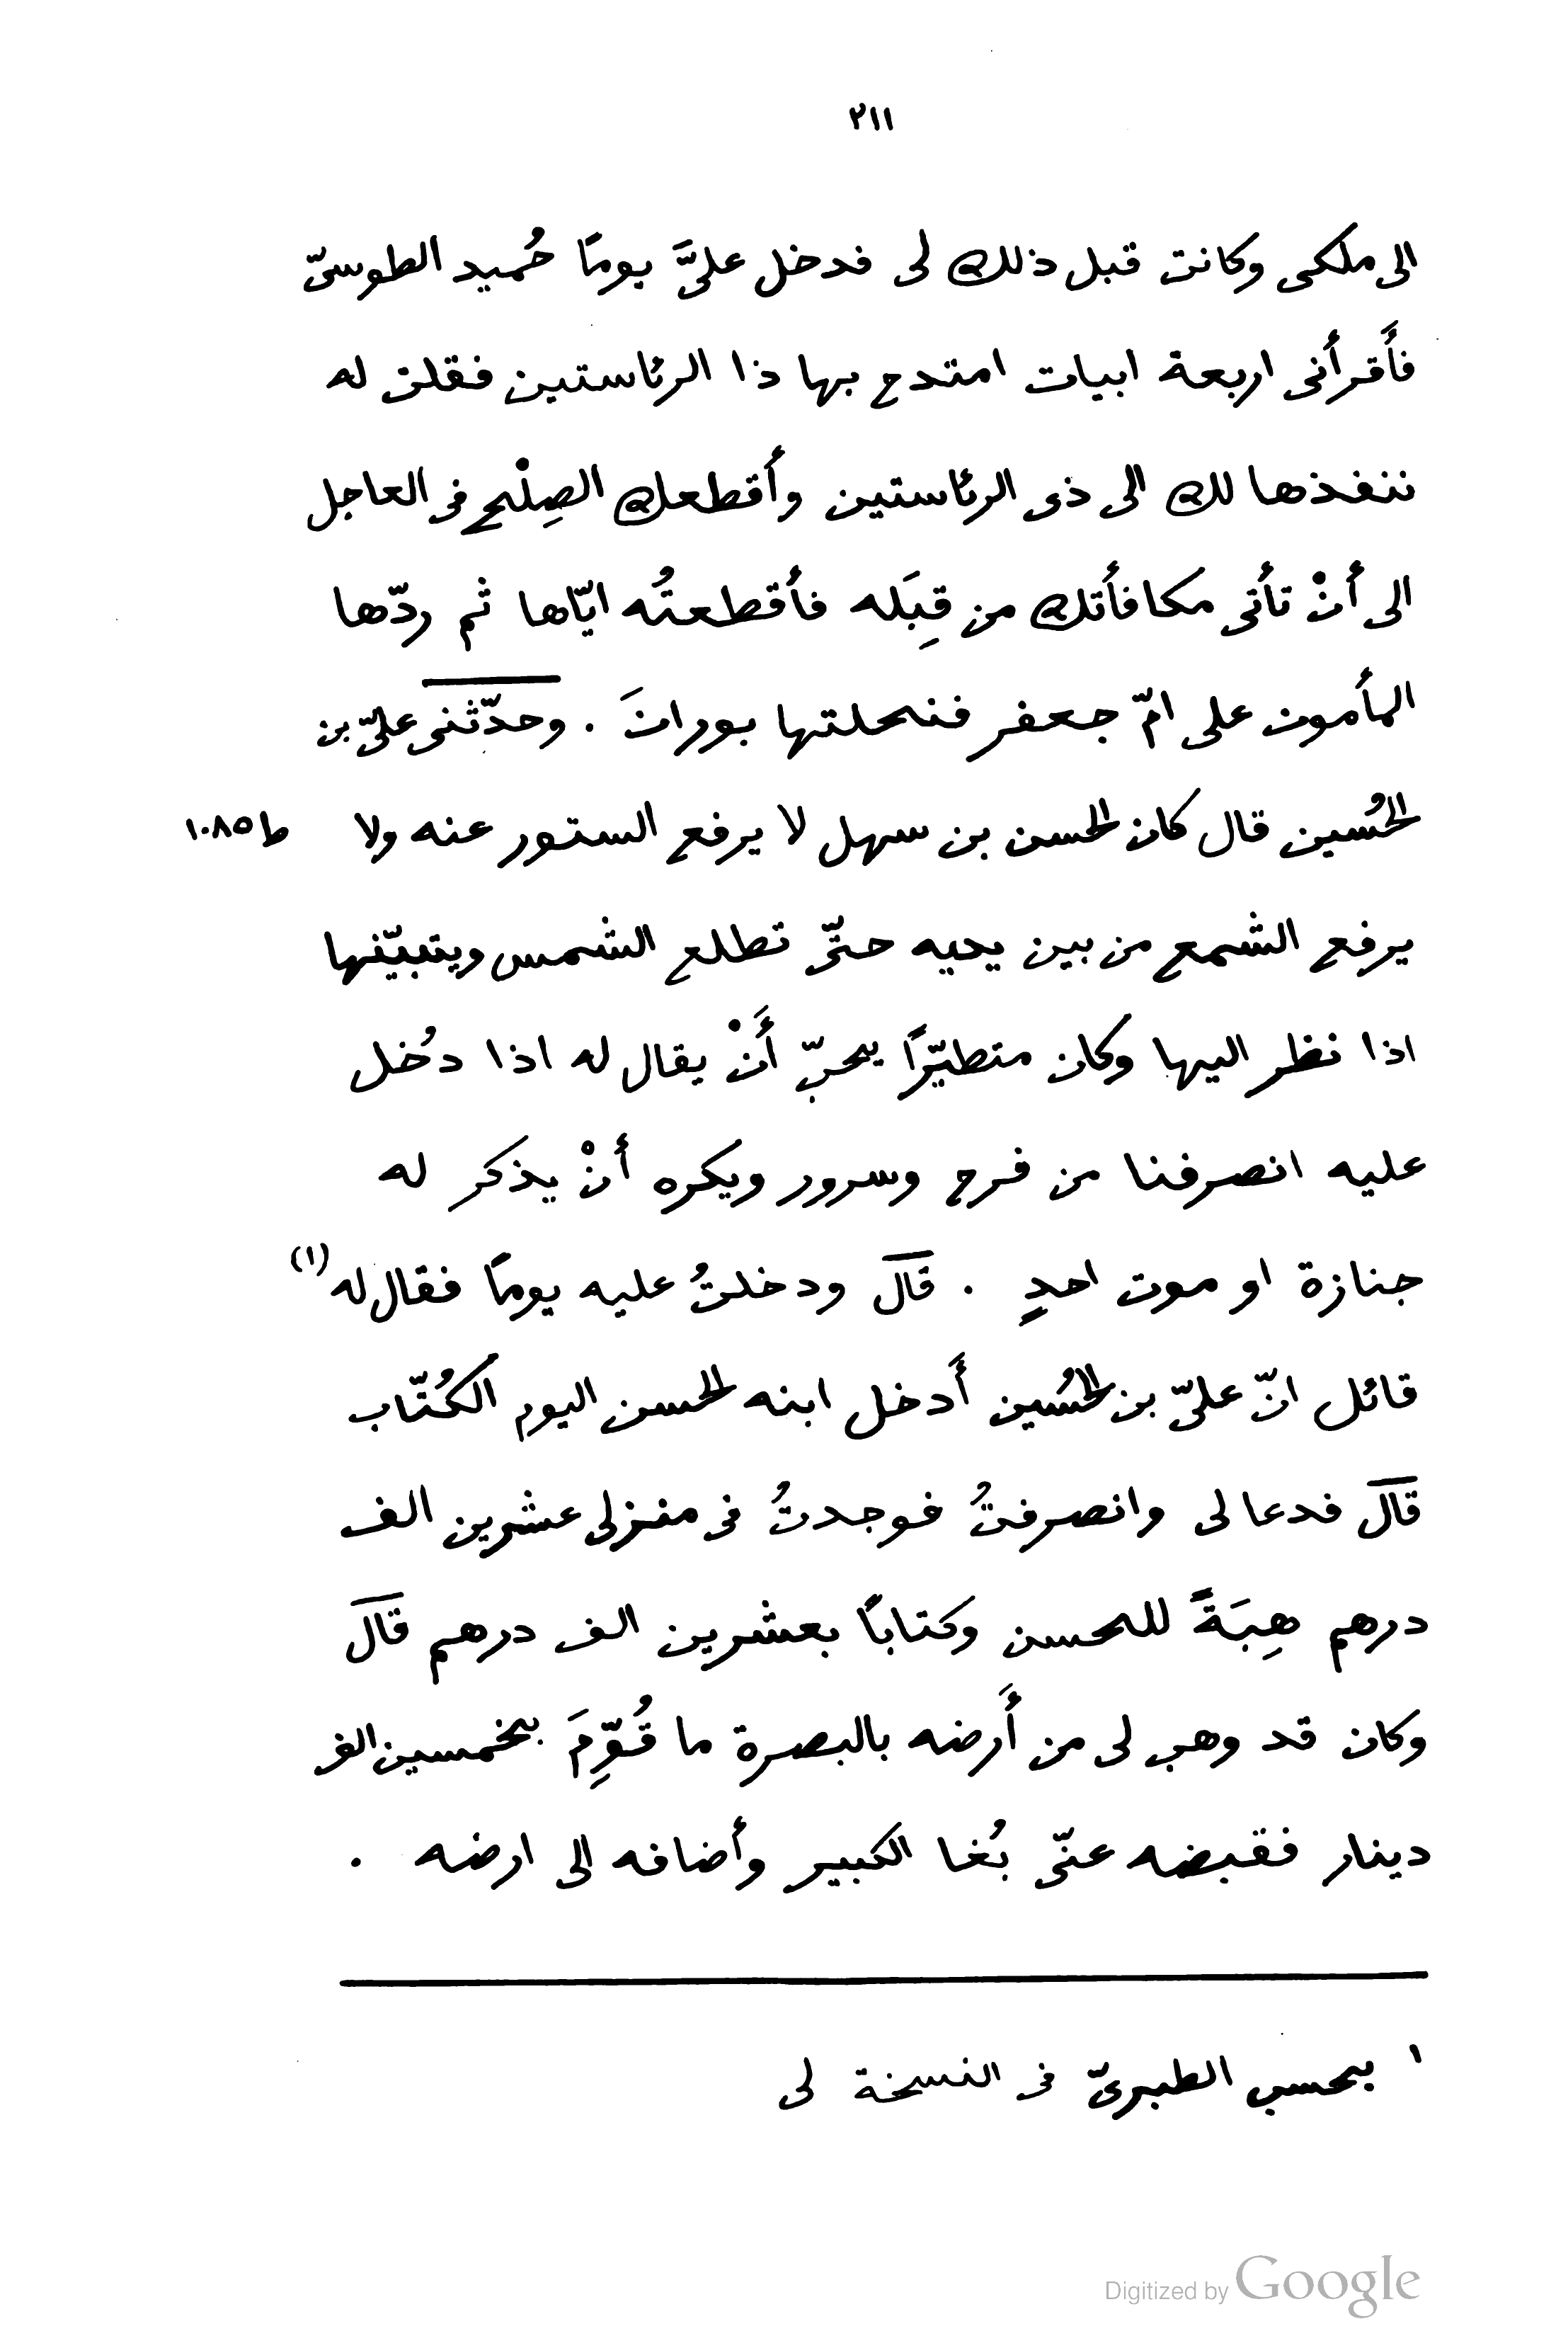 ٢١١
الى ملكى وكانت قبل ذلك لى فدخل علىَّ يومًا حُميد الطوسىّ
فأَقرأنى اربعة ابيات امتدح بها ذا الرئاستين فقلت له
ننفذها لك الى ذى الرئاستين وأَقطعك الصِلْح فى العاجل
الى أنْ تأتى مكافأتك من قِبَله فأقطعتُه ايّاها ثم ردّها
المأمون على امّ جعفر فنحلتها بورانَ . وحدّثنى علىّ بن
الحُسين قال كان الحسن بن سهل لا يرفع الستور عنه ولا ط ١٠٨٥
يرفع الشمع من بين يديه حتّى تطلع الشمس ويتبيّنها
اذا نظر اليها وكان متطيّرًا يحبّ أَنْ يقال له اذا دُخل
عليه انصرفنا من فرح وسرور ويكره أنْ يذكر له
جنازة او موت احدٍ . قال ودخلتُ عليه يومًا فقال له (١)
قائل انّ علىّ بن الحُسين أَدخل ابنه الحسن اليوم الكُتّاب
قال فدعا لى وانصرفتُ فوجدتُ فى منزلى عشرين الف
درهم هِبَةً للحسن وكتابًا بعشرين الف درهم قال
وكان قد وهب لى من أَرضه بالبصرة ما قُوِّمَ بخمسين الف
دينار فقبضه عنّى بُغا الكبير وأضافه الى ارضه .
١ بحسب الطبرىّ فى النسخة لى
Digitized by Google